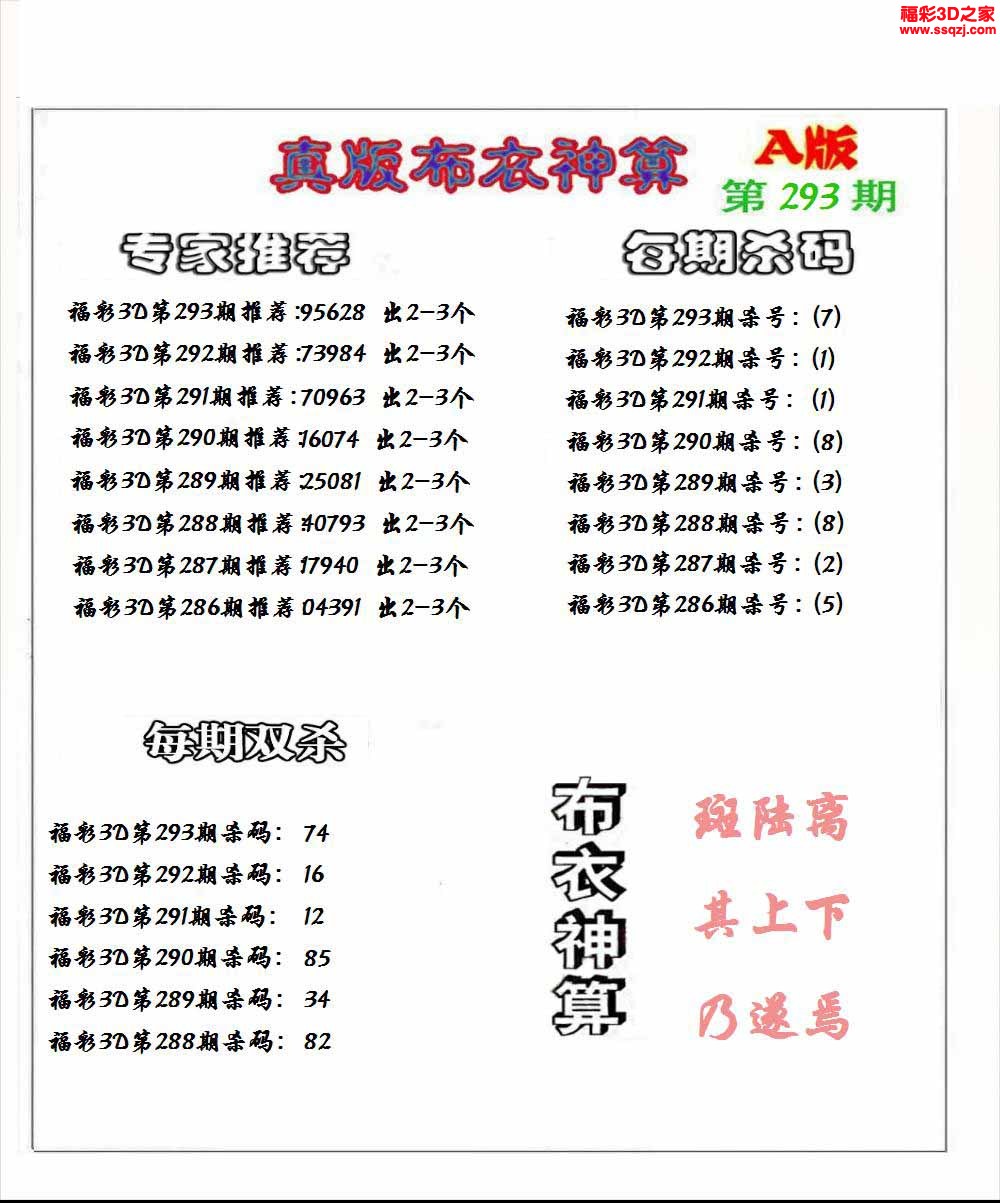 福彩3D之家
www.ssqzj.com
真版布衣神算
A版
第 293 期
专家推荐
福彩3D第293期推荐:95628 出2-3个
福彩3D第292期推荐:73984 出2-3个
福彩3D第291期推荐:70963 出2-3个
福彩3D第290期推荐:16074 出2-3个
福彩3D第289期推荐:25081 出2-3个
福彩3D第288期推荐:40793 出2-3个
福彩3D第287期推荐:17940 出2-3个
福彩3D第286期推荐:04391 出2-3个
每期杀码
福彩3D第293期杀号：(7)
福彩3D第292期杀号：(1)
福彩3D第291期杀号： (1)
福彩3D第290期杀号：(8)
福彩3D第289期杀号：(3)
福彩3D第288期杀号：(8)
福彩3D第287期杀号：(2)
福彩3D第286期杀号：(5)
每期双杀
福彩3D第293期杀码： 74
福彩3D第292期杀码： 16
福彩3D第291期杀码： 12
福彩3D第290期杀码： 85
福彩3D第289期杀码： 34
福彩3D第288期杀码： 82
布衣神算
斑陆离
其上下
乃遂焉